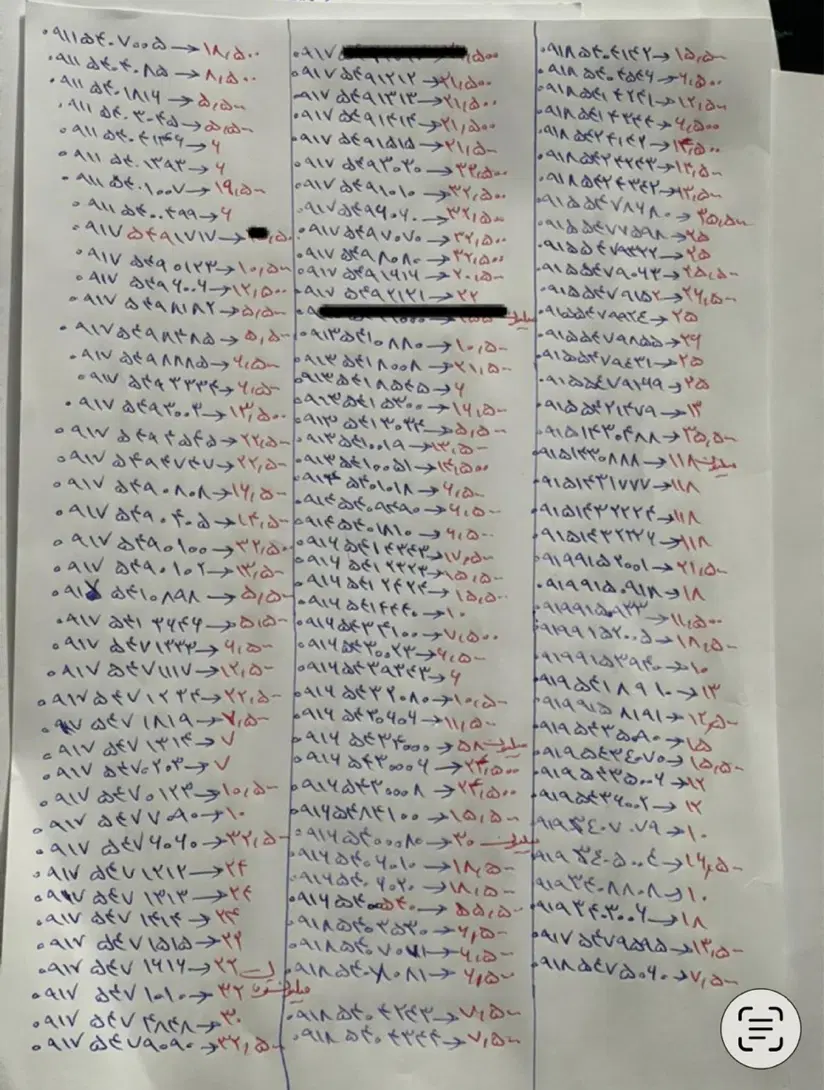 ۰۹۱۱ ۵۴۰۷۰۰۵ → ۱۸,۵۰۰
۰۹۱۱ ۵۴۰۴۰۸۵ → ۸,۵۰۰
۰۹۱۱ ۵۴۰۱۸۱۶ → ۵,۵۰
۰۹۱۱ ۵۴۰۳۰۴۵ → ۵,۵۰
۰۹۱۱ ۵۴۰۴۱۴۶ → ۶
۰۹۱۱ ۵۴۰۱۳۹۳ → ۶
۰۹۱۱ ۵۴۰۱۰۰۷ → ۱۹,۵۰
۰۹۱۱ ۵۴۰۰۴۹۹ → ۶
۰۹۱۷ ۵۴۹۱۷۱۷ →
۰۹۱۷ ۵۴۹۰۱۲۳ → ۱۰,۵۰
۰۹۱۷ ۵۴۹۶۰۰۶ → ۱۲,۵۰۰
۰۹۱۷ ۵۴۹۸۱۸۲ → ۵,۵۰
۰۹۱۷ ۵۴۹۸۴۸۵ → ۵,۵۰
۰۹۱۷ ۵۴۹۸۸۸۵ → ۶,۵۰
۰۹۱۷ ۵۴۹۲۳۳۴ → ۶,۵۰
۰۹۱۷ ۵۴۹۳۰۰۳ → ۱۳,۵۰۰
۰۹۱۷ ۵۴۹۴۵۴۵ → ۲۲,۵۰
۰۹۱۷ ۵۴۹۴۷۴۷ → ۲۲,۵۰
۰۹۱۷ ۵۴۹۰۸۰۸ → ۱۶,۵۰
۰۹۱۷ ۵۴۹۰۴۰۵ → ۱۴,۵۰
۰۹۱۷ ۵۴۹۰۱۰۰ → ۳۲,۵۰
۰۹۱۷ ۵۴۹۰۱۰۲ → ۱۳,۵۰
۵۴۱۰۸۹۸ → ۵,۵۰
۰۹۱۷ ۵۴۱۲۶۴۶ → ۵,۵۰
۰۹۱۷ ۵۴۷۱۳۳۳ → ۶,۵۰
۰۹۱۷ ۵۴۷۱۱۱۷ → ۱۲,۵۰
۰۹۱۷ ۵۴۷۱۲۳۴ → ۲۲,۵۰
۰۹۱۷ ۵۴۷۱۸۱۹ → ۷,۵۰
۰۹۱۷ ۵۴۷۱۳۱۴ → ۷
۰۹۱۷ ۵۴۷۰۲۰۳ → ۷
۰۹۱۷ ۵۴۷۰۱۲۳ → ۱۰,۵۰
۰۹۱۷ ۵۴۷۷۰۹۰ → ۱۰
۰۹۱۷ ۵۴۷۶۰۶۰ → ۳۲,۵۰
۰۹۱۷ ۵۴۷۱۲۱۲ → ۲۴
۰۹۱۷ ۵۴۷۱۳۱۳ → ۲۴
۰۹۱۷ ۵۴۷۱۴۱۴ → ۲۴
۰۹۱۷ ۵۴۷۱۵۱۵ → ۲۴
۰۹۱۷ ۵۴۷۱۶۱۶ → ۲۲
۰۹۱۷ ۵۴۷۱۰۱۰ → ۳۲ میلیون
۰۹۱۷ ۵۴۷۴۸۴۸ → ۳۰
۰۹۱۷ ۵۴۷۹۰۹۰ → ۳۲,۵۰
۰۹۱۷ ,۵۰۰
۰۹۱۷ ۵۴۹۱۲۱۲ → ۲۱,۵۰۰
۰۹۱۷ ۵۴۹۱۳۱۳ → ۲۱,۵۰۰
۰۹۱۷ ۵۴۹۱۴۱۴ → ۲۱,۵۰۰
۰۹۱۷ ۵۴۹۱۵۱۵ → ۲۱,۵۰
۰۹۱۷ ۵۴۹۳۰۳۰ → ۳۲,۵۰۰
۰۹۱۷ ۵۴۹۱۰۱۰ → ۳۲,۵۰۰
۰۹۱۷ ۵۴۹۶۰۶۰ → ۳۲,۵۰
۰۹۱۷ ۵۴۹۷۰۷۰ → ۳۲,۵۰۰
۰۹۱۷ ۵۴۹۸۰۸۰ → ۳۲,۵۰۰
۰۹۱۷ ۵۴۹۱۶۱۶ → ۲۰,۵۰
۰۹۱۷ ۵۴۹۲۱۲۱ → ۲۲
میلیون
۰۹۱۳ ۵۴۱۰۸۸۰ → ۱۰,۵۰
۰۹۱۳ ۵۴۱۸۰۰۸ → ۲۱,۵۰
۰۹۱۳ ۵۴۱۸۵۴۵ → ۶
۰۹۱۳ ۵۴۱۵۳۰۰ → ۱۶,۵۰
۰۹۱۳ ۵۴۱۳۰۲۴ → ۵,۵۰
۰۹۱۳ ۵۴۱۰۰۱۹ → ۱۳,۵۰
۰۹۱۳ ۵۴۱۰۰۵۱ → ۱۴,۵۰۰
۰۹۱۴ ۵۴۰۱۰۱۸ → ۶,۵۰
۰۹۱۴ ۵۴۰۵۴۹۰ → ۶,۵۰
۰۹۱۴ ۵۴۰۱۸۱۰ → ۶,۵۰
۰۹۱۶ ۵۴۱۴۳۴۳ → ۱۷,۵۰
۰۹۱۶ ۵۴۱۲۳۲۳ → ۱۵,۵۰
۰۹۱۶ ۵۴۱۲۴۲۴ → ۱۵,۵۰
۰۹۱۶ ۵۴۱۴۴۴۰ → ۱۰
۰۹۱۶ ۵۴۳۴۱۰۰ → ۷,۵۰۰
۰۹۱۶ ۵۴۳۰۰۲۳ → ۶,۵۰
۰۹۱۶ ۵۴۳۹۳۴۳ → ۶
۰۹۱۶ ۵۴۳۲۰۸۰ → ۱۰,۵۰
۰۹۱۶ ۵۴۳۰۶۰۶ → ۱۱,۵۰
۰۹۱۶ ۵۴۳۴۰۰۰ → ۵۸ میلیون
۰۹۱۶ ۵۴۳۰۰۰۶ → ۲۴,۵۰۰
۰۹۱۶ ۵۴۳۰۰۰۸ → ۲۴,۵۰۰
۰۹۱۶ ۵۴۸۴۱۰۰ → ۱۵,۵۰
۰۹۱۶ ۵۴۰۰۰۸۰ → ۳۰ میلیون
۰۹۱۶ ۵۴۰۶۰۱۰ → ۱۸,۵۰
۰۹۱۶ ۵۴۰۶۰۲۰ → ۱۸,۵۰
۰۹۱۶ ۵۴۰۵۴۰ → ۵۵,۵۰
۰۹۱۸ ۵۴۰۲۵۲۰ → ۶,۵۰
۰۹۱۸ ۵۴۰۷۰۷۱ → ۶,۵۰
۰۹۱۸ ۵۴۰۷۰۸۱ → ۶,۵۰
۰۹۱۸ ۵۴۰۴۲۴۳ → ۷,۵۰
۰۹۱۸ ۵۴۰۴۳۴۴ → ۷,۵۰
۰۹۱۸ ۵۴۰۴۱۴۲ → ۱۵,۵۰
۰۹۱۸ ۵۴۰۴۵۴۶ → ۶,۵۰۰
۰۹۱۸ ۵۴۱۴۲۴۱ → ۱۲,۵۰
۰۹۱۸ ۵۴۱۴۳۴۴ → ۶,۵۰۰
۰۹۱۸ ۵۴۲۴۱۴۲ → ۱۳,۵۰۰
۰۹۱۸ ۵۴۲۴۲۴۳ → ۱۳,۵۰
۰۹۱۸ ۵۴۲۴۳۴۲ → ۱۳,۵۰
۰۹۱۵ ۵۴۷۸۶۸۰ → ۲۵,۵۰
۰۹۱۵ ۵۴۷۷۵۹۸ → ۲۵
۰۹۱۵ ۵۴۷۹۴۲۲ → ۲۵
۰۹۱۵ ۵۴۷۹۰۶۳ → ۲۵,۵۰
۰۹۱۵ ۵۴۷۹۱۵۲ → ۲۶,۵۰
۰۹۱۵ ۵۴۷۹۹۲۴ → ۲۵
۰۹۱۵ ۵۴۷۹۸۵۵ → ۲۶
۰۹۱۵ ۵۴۷۹۴۳۱ → ۲۵
۰۹۱۵ ۵۴۷۹۱۶۹ → ۲۵
۰۹۱۵ ۵۴۲۱۴۷۹ → ۱۳
۰۹۱۵۱۴۳۰۴۸۸ → ۲۵,۵۰
۰۹۱۵۱۴۳۰۸۸۸ → ۱۱۸ میلیون
۰۹۱۵۱۴۳۱۷۷۷ → ۱۱۸
۰۹۱۵۱۴۳۲۲۲۴ → ۱۱۸
۰۹۱۵۱۴۳۲۲۲۶ → ۱۱۸
۰۹۱۹۹۱۵۲۰۰۱ → ۲۱,۵۰
۰۹۱۹۹۱۵۰۹۱۸ → ۱۸
۰۹۱۹۹۱۵۰۹۳۳ → ۱۱,۵۰۰
۰۹۱۹۹۱۵۲۰۰۵ → ۱۸,۵۰
۰۹۱۹۹۱۵۳۹۴۰ → ۱۰
۰۹۱۹۵۴۱۸۹۱۰ → ۱۳
۰۹۱۹۹۱۵۸۱۹۱ → ۱۲,۵۰
۰۹۱۹۵۴۳۵۰۹۰ → ۱۵
۰۹۱۹۵۴۳۴۰۷۰ → ۱۵,۵۰
۰۹۱۹۵۴۳۵۰۰۶ → ۱۲
۰۹۱۹۵۴۳۶۰۰۲ → ۱۲
۰۹۱۹۳۴۰۷۰۷۹ → ۱۰
۰۹۱۹۳۴۰۵۰۰۴ → ۱۶,۵۰
۰۹۱۹۳۴۰۸۸۰۸ → ۱۰
۰۹۱۹۳۴۰۳۰۰۶ → ۱۸
۰۹۱۷ ۵۴۷۹۵۹۵ → ۱۳,۵۰
۰۹۱۸ ۵۴۷۵۰۶۰ → ۷,۵۰